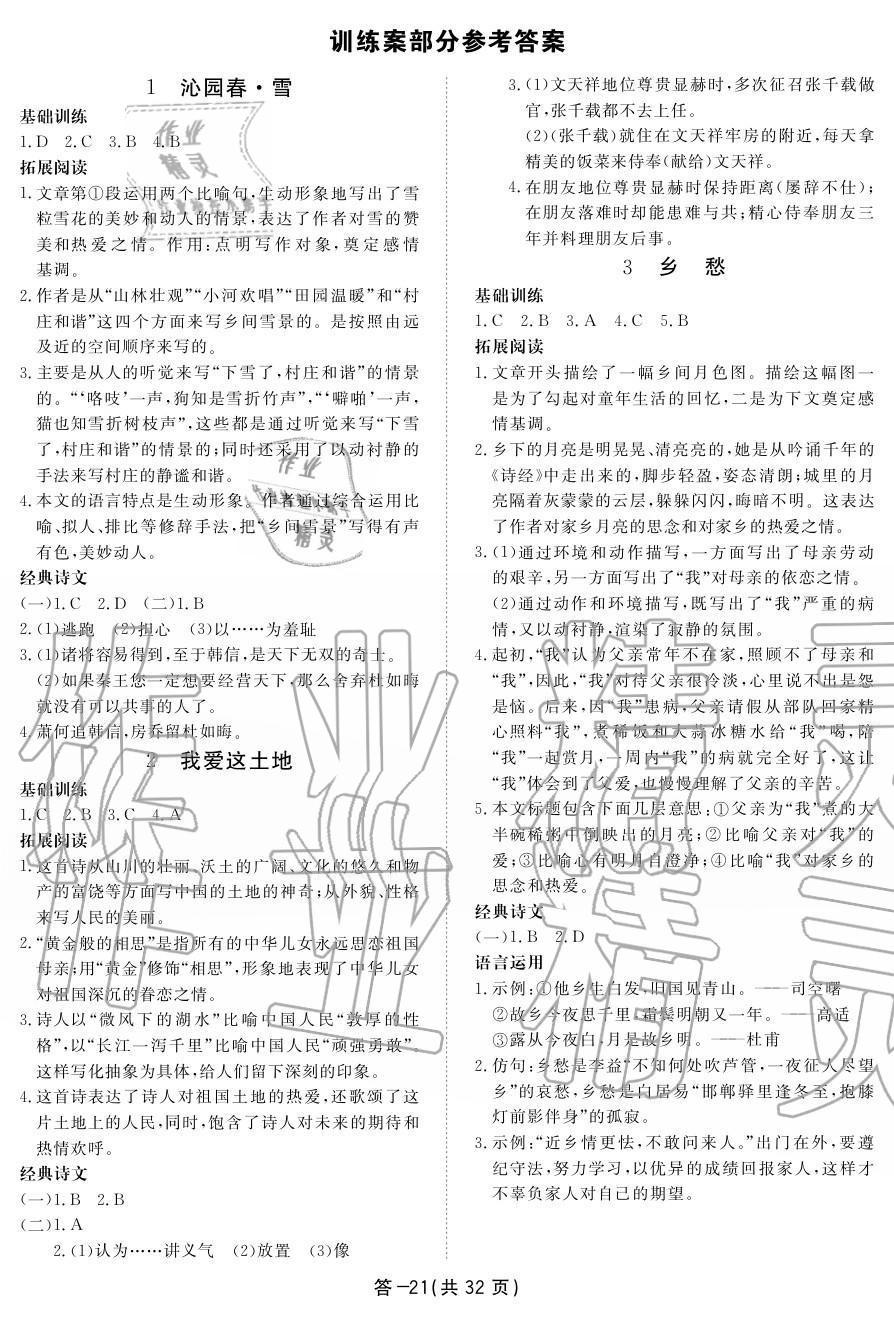 训练案部分参考答案
1 沁园春·雪
基础训练
1.D 2.C 3.B 4.B
拓展阅读
1.文章第①段运用两个比喻句,生动形象地写出了雪
粒雪花的美妙和动人的情景,表达了作者对雪的赞
美和热爱之情。作用:点明写作对象,奠定感情
基调。
2.作者是从“山林壮观”“小河欢唱”“田园温暖”和“村
庄和谐”这四个方面来写乡间雪景的。是按照由远
及近的空间顺序来写的。
3.主要是从人的听觉来写“下雪了,村庄和谐”的情景
的。“‘咯吱’一声,狗知是雪折竹声”,“‘噼啪’一声,
猫也知雪折树枝声”,这些都是通过听觉来写“下雪
了,村庄和谐”的情景的;同时还采用了以动衬静的
手法来写村庄的静谧和谐。
4.本文的语言特点是生动形象。作者通过综合运用比
喻、拟人、排比等修辞手法,把“乡间雪景”写得有声
有色,美妙动人。
经典诗文
(一)1.C 2.D (二)1.B
2.(1)逃跑 (2)担心 (3)以……为羞耻
3.(1)诸将容易得到,至于韩信,是天下无双的奇士。
(2)如果秦王您一定想要经营天下,那么舍弃杜如晦
就没有可以共事的人了。
4.萧何追韩信,房乔留杜如晦。
2 我爱这土地
基础训练
1.C 2.B 3.C 4.A
拓展阅读
1.这首诗从山川的壮丽、沃土的广阔、文化的悠久和物
产的富饶等方面写中国的土地的神奇;从外貌、性格
来写人民的美丽。
2.“黄金般的相思”是指所有的中华儿女永远思恋祖国
母亲;用“黄金”修饰“相思”,形象地表现了中华儿女
对祖国深沉的眷恋之情。
3.诗人以“微风下的湖水”比喻中国人民“敦厚的性
格”,以“长江一泻千里”比喻中国人民“顽强勇敢”。
这样写化抽象为具体,给人们留下深刻的印象。
4.这首诗表达了诗人对祖国土地的热爱,还歌颂了这
片土地上的人民,同时,饱含了诗人对未来的期待和
热情欢呼。
经典诗文
(一)1.B 2.B
(二)1.A
2.(1)认为……讲义气 (2)放置 (3)像
3.(1)文天祥地位尊贵显赫时,多次征召张千载做
官,张千载都不去上任。
(2)(张千载)就住在文天祥牢房的附近,每天拿
精美的饭菜来侍奉(献给)文天祥。
4.在朋友地位尊贵显赫时保持距离(屡辞不仕);
在朋友落难时却能患难与共;精心侍奉朋友三
年并料理朋友后事。
3 乡愁
基础训练
1.C 2.B 3.A 4.C 5.B
拓展阅读
1.文章开头描绘了一幅乡间月色图。描绘这幅图一
是为了勾起对童年生活的回忆,二是为下文奠定感
情基调。
2.乡下的月亮是明晃晃、清亮亮的,她是从吟诵千年的
《诗经》中走出来的,脚步轻盈,姿态清朗;城里的月
亮隔着灰蒙蒙的云层,躲躲闪闪,晦暗不明。这表达
了作者对家乡月亮的思念和对家乡的热爱之情。
3.(1)通过环境和动作描写,一方面写出了母亲劳动
的艰辛,另一方面写出了“我”对母亲的依恋之情。
(2)通过动作和环境描写,既写出了“我”严重的病
情,又以动衬静,渲染了寂静的氛围。
4.起初,“我”认为父亲常年不在家,照顾不了母亲和
“我”,因此,“我”对待父亲很冷淡,心里说不出是怨
是恼。后来,因“我”患病,父亲请假从部队回家精
心照料“我”,煮稀饭和大蒜冰糖水给“我”喝,陪
“我”一起赏月,一周内“我”的病就完全好了,这让
“我”体会到了父爱,也慢慢理解了父亲的辛苦。
5.本文标题包含下面几层意思:①父亲为“我”煮的大
半碗稀粥中倒映出的月亮;②比喻父亲对“我”的
爱;③比喻心有明月自澄净;④比喻“我”对家乡的
思念和热爱。
经典诗文
(一)1.B 2.D
语言运用
1.示例:①他乡生白发,旧国见青山。——司空曙
②故乡今夜思千里,霜鬓明朝又一年。——高适
③露从今夜白,月是故乡明。——杜甫
2.仿句:乡愁是李益“不知何处吹芦管,一夜征人尽望
乡”的哀愁,乡愁是白居易“邯郸驿里逢冬至,抱膝
灯前影伴身”的孤寂。
3.示例:“近乡情更怯,不敢问来人。”出门在外,要遵
纪守法,努力学习,以优异的成绩回报家人,这样才
不辜负家人对自己的期望。
答-21(共 32 页)
作业精灵
作业
精灵
作业精灵
作业精灵